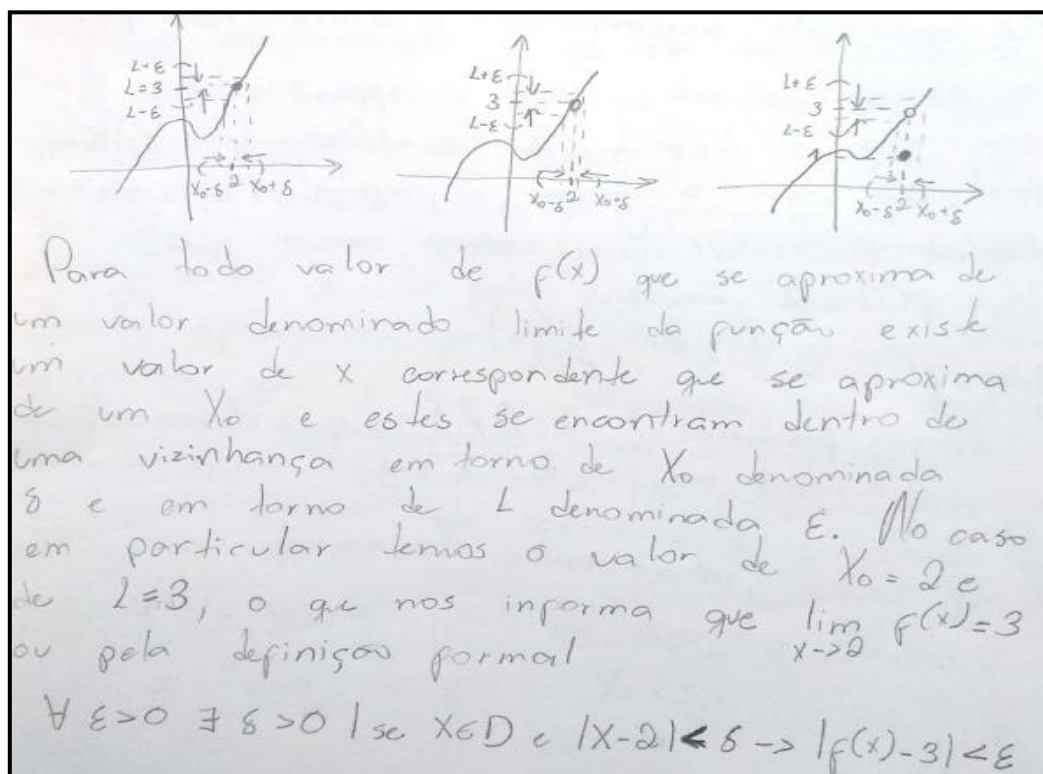 L+ε
L=3
L-ε
x₀-δ 2 x₀+δ
L+ε
3
L-ε
x₀-δ 2 x₀+δ
L+ε
3
L-ε
x₀-δ 2 x₀+δ
Para todo valor de f(x) que se aproxima de
um valor denominado limite da função existe
um valor de x correspondente que se aproxima
de um X₀ e estes se encontram dentro de
uma vizinhança em torno de X₀ denominada
δ e em torno de L denominada ε. No caso
em particular temos o valor de X₀ = 2 e
de L=3, o que nos informa que lim f(x)=3
x->2
ou pela definição formal
∀ ε>0 ∃ δ>0 | se x∈D e |x-2|< δ -> |f(x)-3|<ε